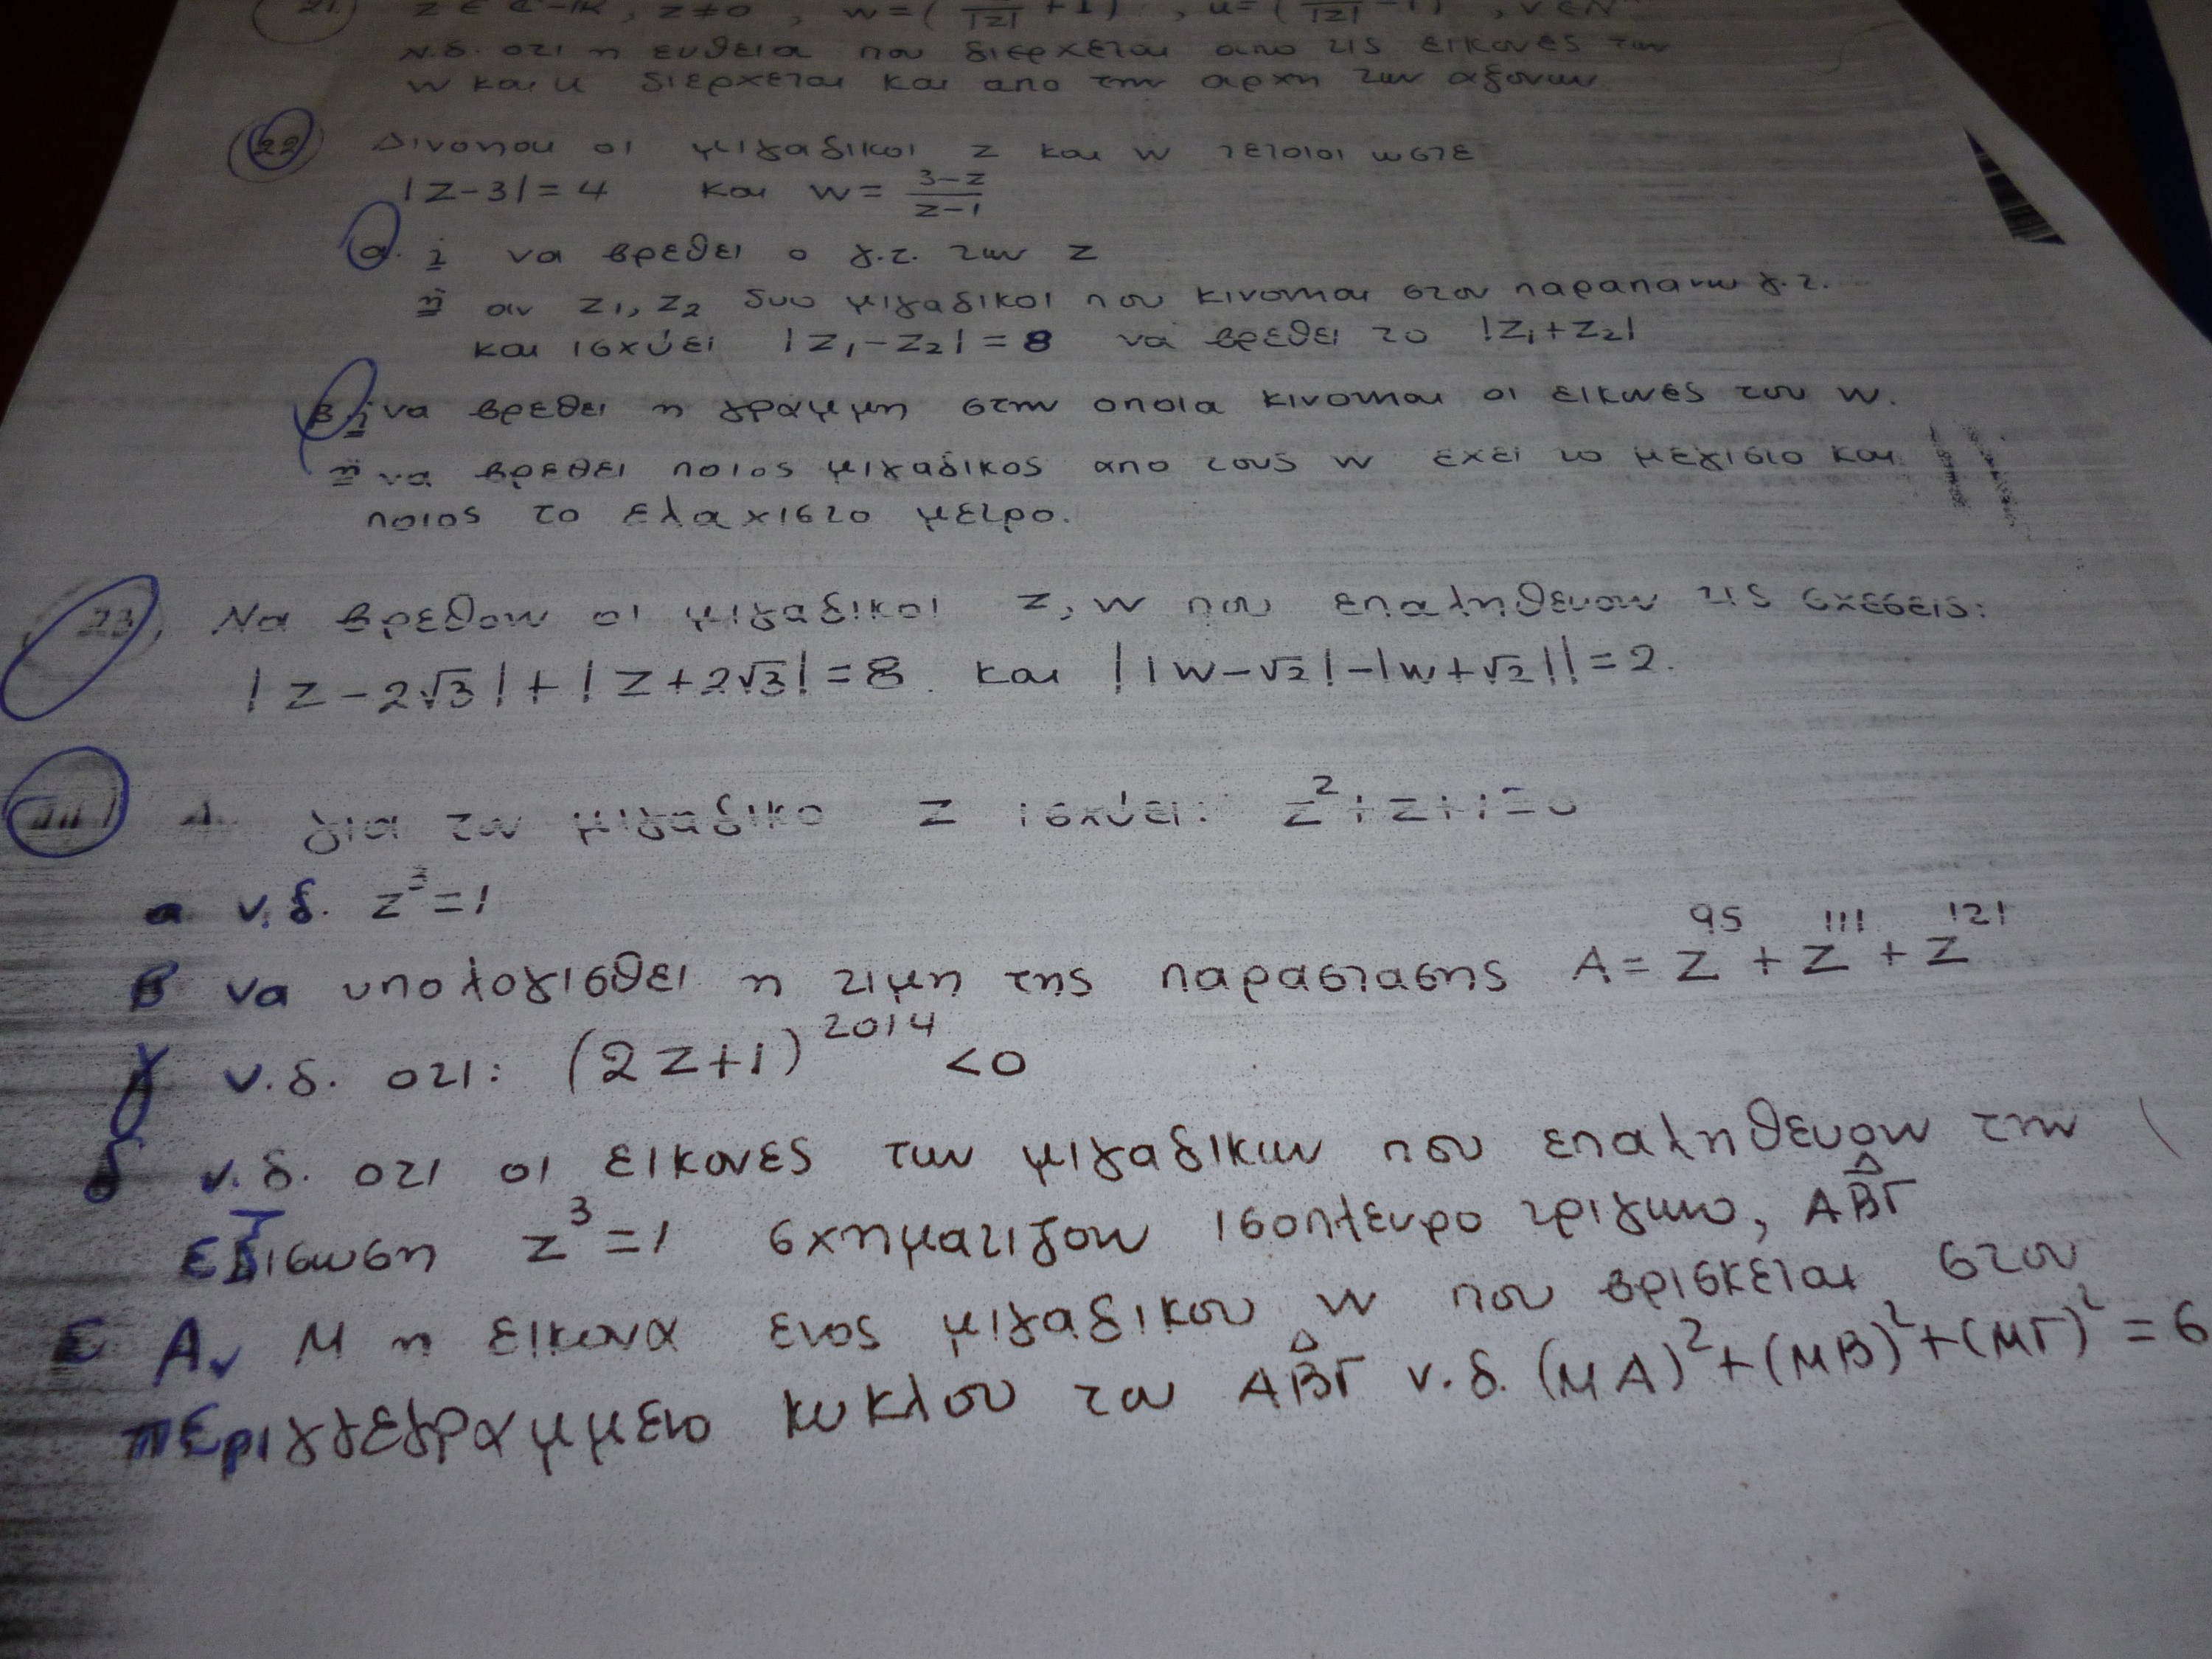 21. z ∈ C-IR, z≠0, w=( /|z| +1) , u=( /|z| -1) , ν∈N
Ν.δ. οτι η ευθεια που διερχεται απο τις εικονες των
w και u διερχεται και απο την αρχη των αξονων
22 Δινονται οι μιγαδικοι z και w τετοιοι ωστε
|z-3|=4 και w= 3-z/z-1
α. i να βρεθει ο γ.τ. των z
ii αν z₁, z₂ δυο μιγαδικοι που κινονται στον παραπανω γ.τ.
και ισχύει |z₁-z₂|=8 να βρεθει το |z₁+z₂|
β. i να βρεθει η γραμμη στην οποια κινονται οι εικονες του w.
ii να βρεθει ποιος μιγαδικος απο τους w εχει το μεγιστο και
ποιος το ελαχιστο μετρο.
23, Να βρεθουν οι μιγαδικοι z, w που επαληθευουν τις σχεσεις:
|z-2√3|+|z+2√3|=8 και ||w-√2|-|w+√2||=2.
για τον μιγαδικο z ισχύει: z²+z+1=0
α ν.δ. z³=1
β να υπολογισθει η τιμη της παραστασης A= z⁹⁵+z¹¹¹+z¹²¹
γ ν.δ. οτι: (2z+1)²⁰¹⁴ <0
δ ν.δ. οτι οι εικονες των μιγαδικων που επαληθευουν την
εξισωση z³=1 σχηματιζουν ισοπλευρο τριγωνο, ΑΒΓ
ε Αν Μ η εικονα ενος μιγαδικου w που βρισκεται στον
περιγγεγραμμενο κυκλου του ΑΒΓ ν.δ. (ΜΑ)²+(ΜΒ)²+(ΜΓ)²=6